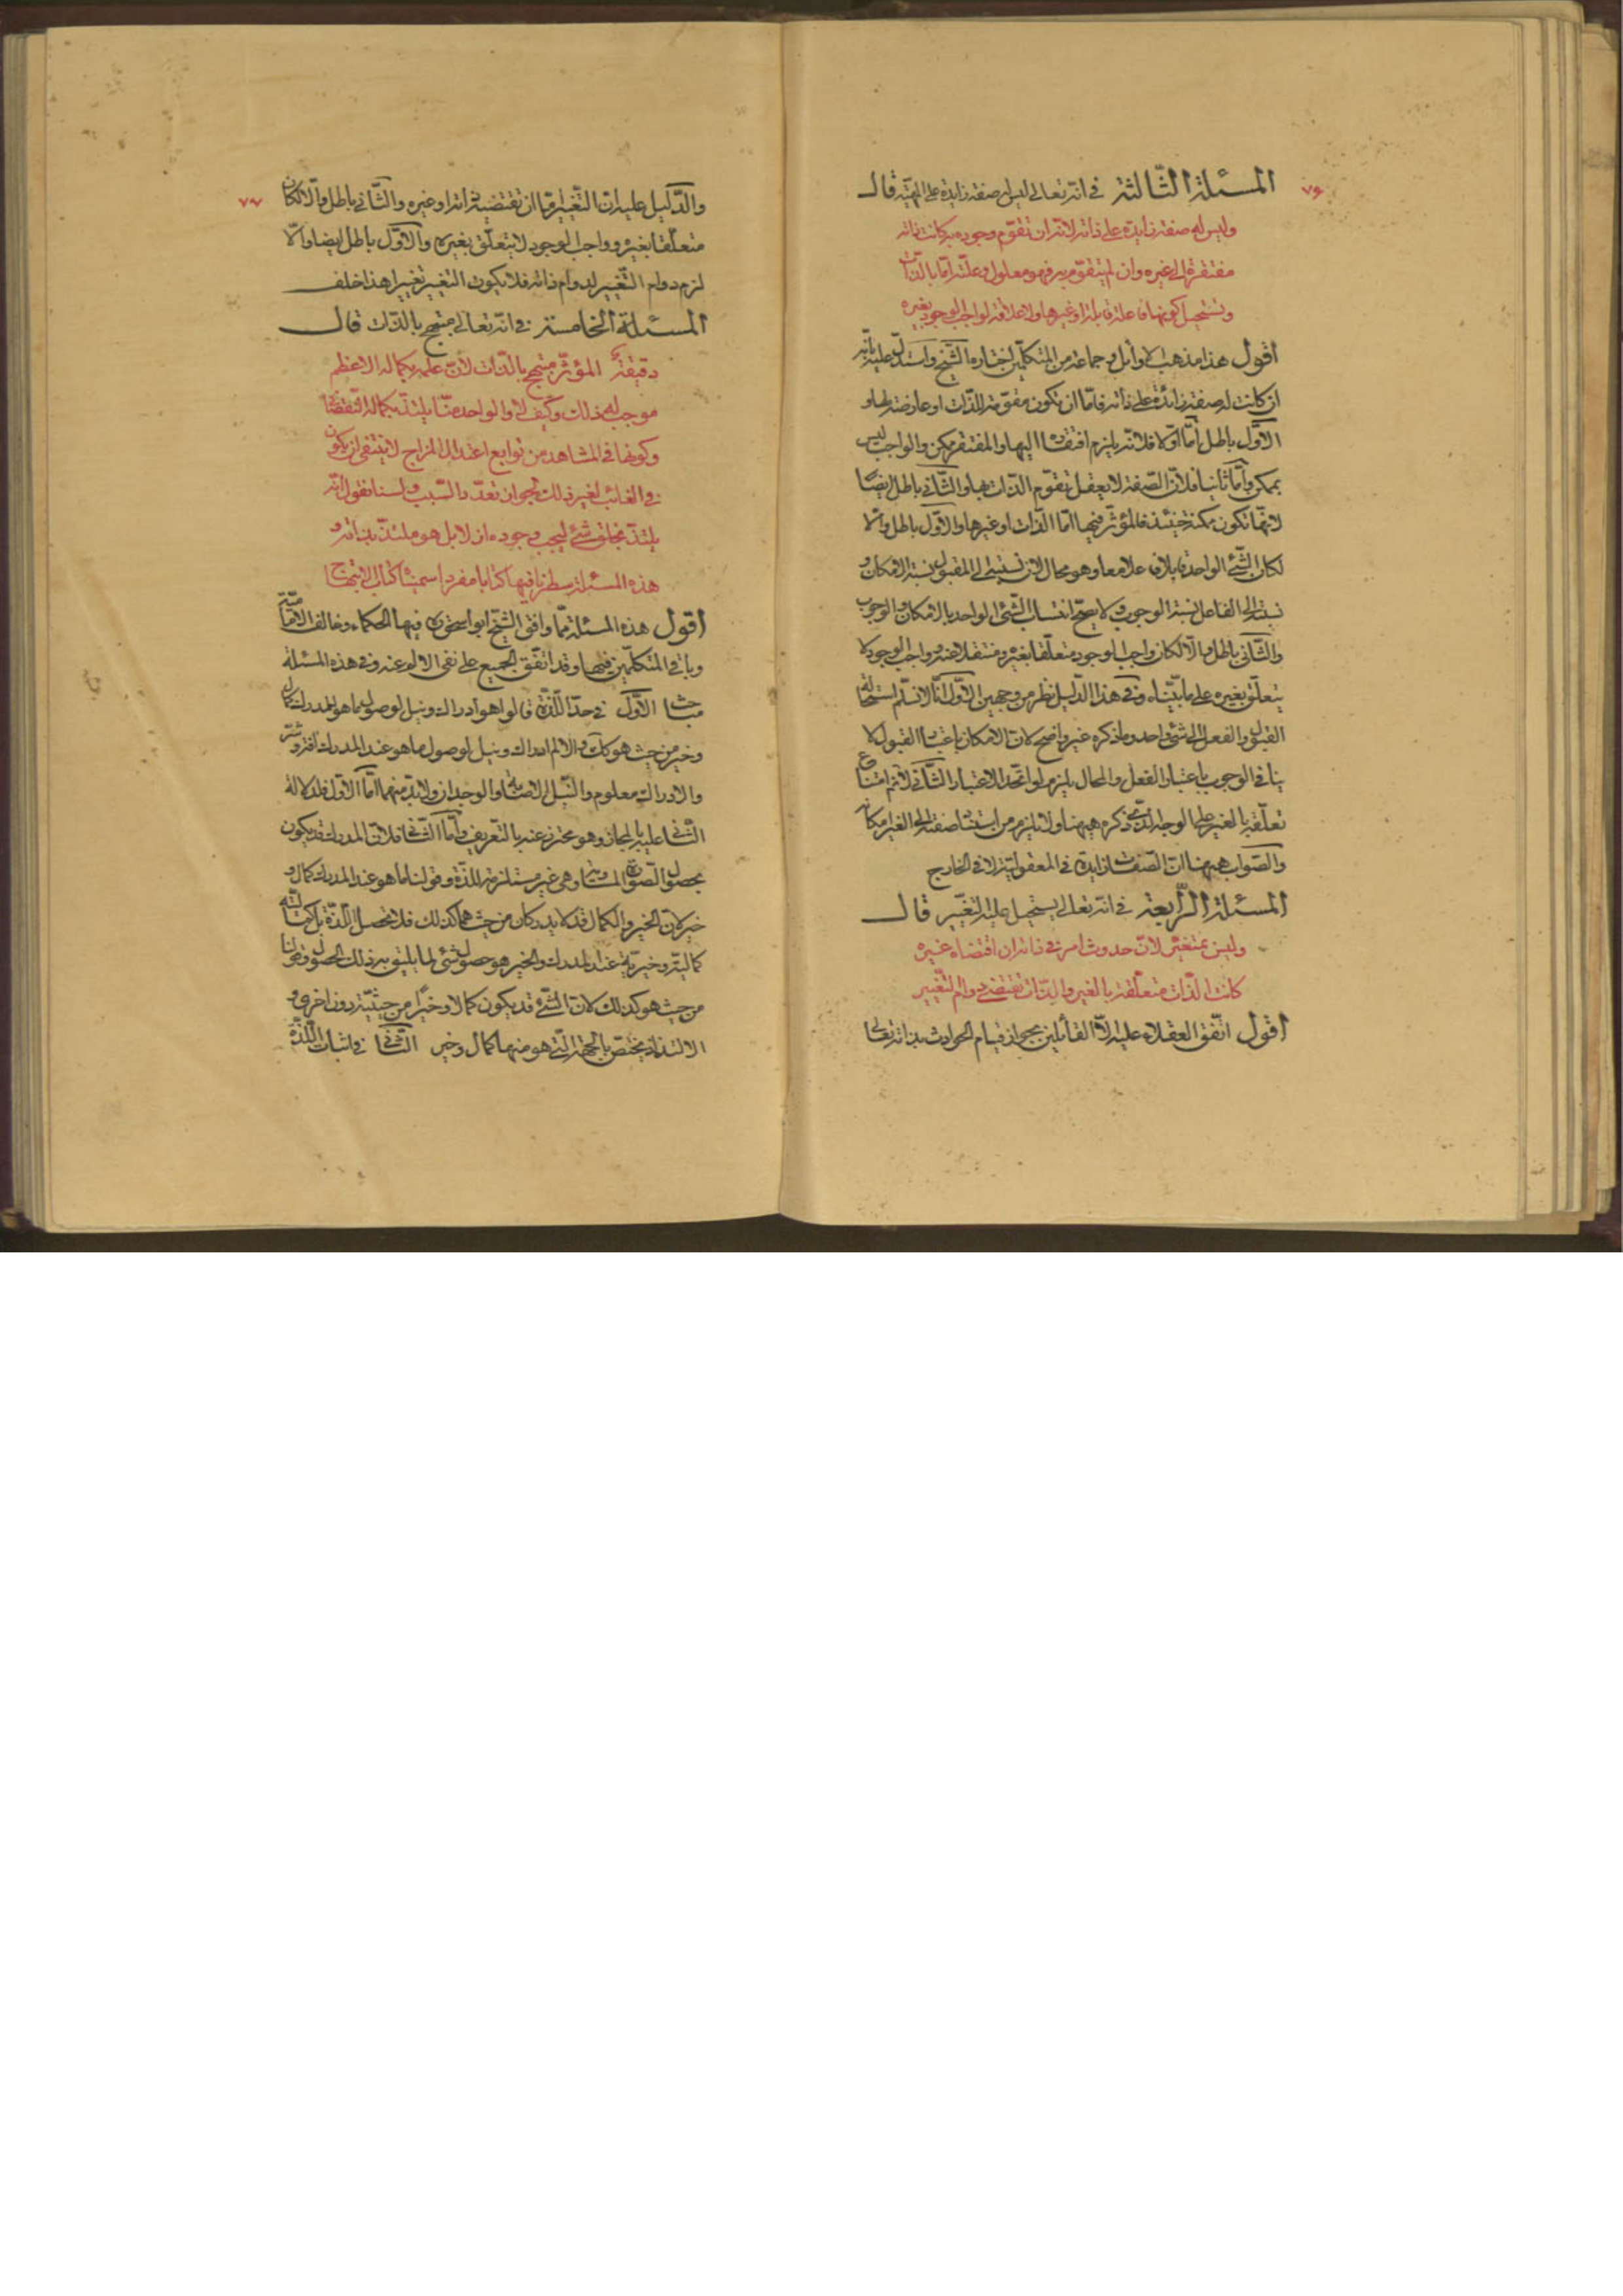 ٧٦
المسئلة الثّالثة في انّه تعالى ليس له صفة زايدة على المهيّة قال
وليس له صفة زايدة على ذاته لانّه ان تقوّم وجوده به كانت ذاته
مفتقرة الى غيره وان لم يتقوّم به فهو معلول وعلّته امّا بالذّات
وتستحيل كونها فاعلة قابلة او غيرها ولا علاقة لواجب الوجود بغيره
اقول هذا مذهب الاوائل وجماعة من المتكلّمين اختاره الشّيخ واستدلّ عليه بانّه
ان كانت له صفة زائدة على ذاته فامّا ان تكون مقوّمة للذّات او عارضة لها و
الاوّل باطل امّا اوّلا فلانّه يلزم افتقاره اليها والمفتقر ممكن والواجب ليس
بممكن وامّا ثانيا فلانّ الصّفة لا يعقل تقوّم الذّات بها والثّانى باطل ايضًا
لانّها تكون ممكنة حينئذ فالمؤثّر فيها امّا الذّات او غيرها والاوّل باطل والّا
لكان الشّئ الواحد قابلا وفاعلا معا وهو محال لانّ نسبته الى المقبول نسبة الامكان و
نسبته الى الفاعل نسبة الوجوب ولا يصحّ انتساب الشّئ الواحد بالامكان والوجوب
والثّانى باطل والّا لكان واجب الوجود متعلّقا بغيره ومنفعلا عنه وواجب الوجود لا
يتعلّق بغيره على ما بيّناه وفى هذا الدّليل نظر من وجهين الاوّل انّا لا نسلّم استحالة
القبول والفعل الى شئ واحد وما ذكره غير واضح لانّ الامكان باعتبار القبول لا
ينافى الوجوب باعتبار الفعل والمحال يلزم لو اتّحد الاعتبار الثّانى لا نم امتناع
تعلّقه بالغير على الوجه الّذى ذكره هيهنا ولا يلزم من استناد صفته الى الغير امكانه
والصّواب هيهنا انّ الصّفات زايدة فى المعقوليّة لا فى الخارج
المسئلة الرّابعة في انّه تعالى يستحيل عليه التغيّر قال
وليس بمتغيّر لانّ حدوث امر فى ذاته ان اقتضاه غيره
كانت الذّات متعلّقة بالغير والذّات تقتضى دوام التّغيير
اقول اتّفق العقلاء عليه الّا القائلين بجواز قيام الحوادث بذاته تعالى
٧٧
والدّليل عليه انّ التّغيير امّا ان تقتضيه ذاته او غيره والثّانى باطل والّا لكان
متعلّقا بغيره وواجب الوجود لا يتعلّق بغيره والاوّل باطل ايضا والّا
لزم دوام التّغيير لدوام ذاته فلا يكون التغيير تغييرا هذا خلف
المسئلة الخامسة في انّه تعالى مبتهج بالذّات قال
دقيقة المؤثّر مبتهج بالذّات لانّ علمه بكماله الاعظم
موجب له ذلك وكيف لا والواحد منّا يلتذّ بكماله النّقصانى
وكونها فى المشاهد من توابع اعتدال المزاج لا ينتفى ان يكون
فى الغائب لغير ذلك لجواز تعدّد السّبب ولسنا نقول انّه
يلتذّ بخلق شئ ليجب وجوده ازلا بل هو ملتذّ بذاته و
هذه المسئلة سطرنا فيها كتابا مفردا سميناه كتاب الابتهاج
اقول هذه المسئلة ممّا وافق الشّيخ ابو اسحق ره فيها الحكماء وخالف الاماميّة
وباقى المتكلّمين فيها وقد اتّفق الجميع على نفى الالم عنه وفى هذه المسئلة
مباحث الاوّل في حدّ اللّذّة قالوا هو ادراك ونيل لوصول ما هو للمدرك كمال
وخير من حيث هو كك والالم ادراك ونيل لوصول ما هو عند المدرك افة وشرّ
والادراك معلوم والنّيل الاصابة والوجدان ولا بدّ منهما امّا الاوّل فلدلالة
الثّانى عليه بالمجاز وهو محترز عنه بالتعريف وامّا الثّانى فلانّ المدرك قد يكون
بحصول الصّورة المساوية وهى غير مستلزمة للذّة وقولنا ما هو عند المدرك كمال و
خير لانّ الخير والكمال قد لا يدركان من حيث هما كذلك فلا تحصل اللّذّة بل
كماليّته وخيريّته عند المدرك والخير هو حصول شئ لما يليق به ذلك الحصول وقولنا
من حيث هو كذلك لانّ الشّئ قد يكون كمالا وخيرًا من حيثيّة دون اخرى و
الالتذاذ يختصّ بالجهة الّتى هو منها كمال وخير الثّانى فى اثبات اللّذّة